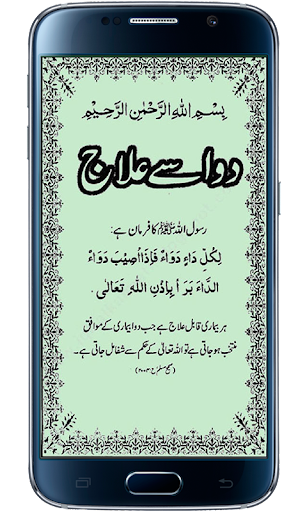 بِسْمِ اللهِ الرَّحْمٰنِ الرَّحِيْمِ
دوا سے علاج
رسول اللہ ﷺ کا فرمان ہے:
لِكُلِّ دَاءٍ دَوَاءٌ فَإِذَا أُصِيْبَ دَوَاءُ
الدَّاءَ بَرَأَ بِإِذْنِ اللهِ تَعَالٰى .
ہر بیماری قابل علاج ہے جب دوا بیماری کے موافق
منتخب ہو جاتی ہے تو اللہ تعالیٰ کے حکم سے شفا مل جاتی ہے۔